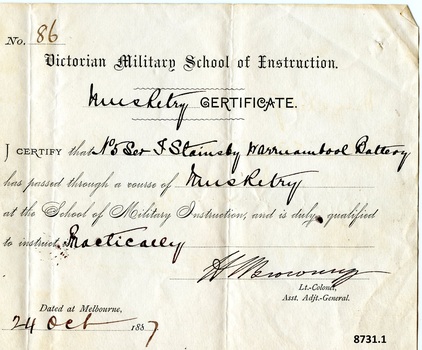 No. 86
Victorian Military School of Instruction.
Musketry CERTIFICATE.
I CERTIFY that No 5 Ser F Stainsby Warrnambool Battery
has passed through a course of Musketry
at the School of Military Instruction, and is duly qualified
to instruct Practically
H Browning
Lt.-Colonel,
Asst. Adjt.-General.
Dated at Melbourne,
24 Oct 1887
8731.1